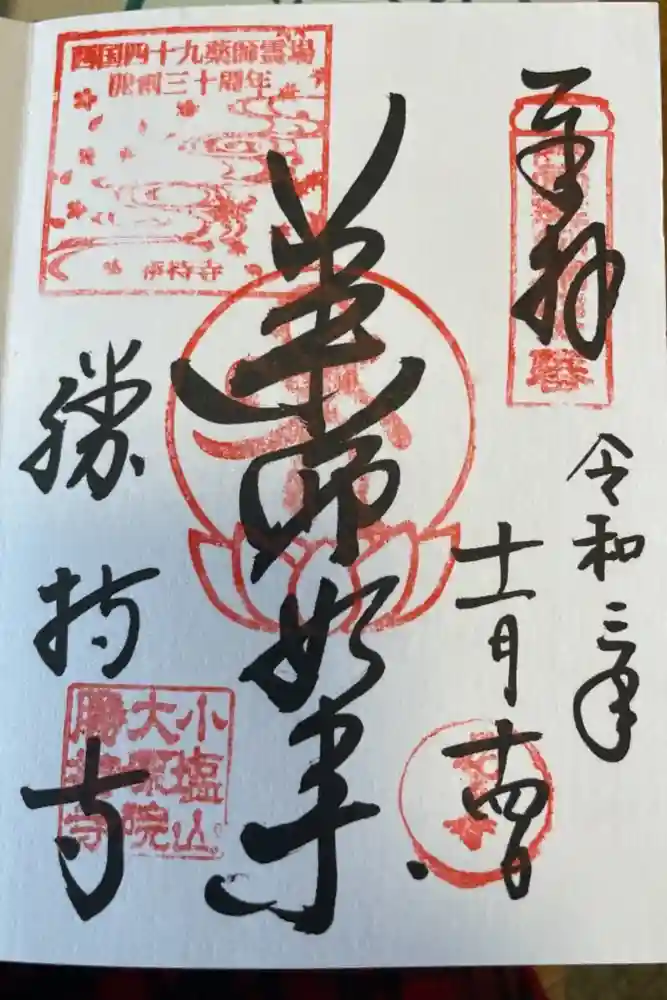 奉拝
令和三年
十一月十四日
薬師如来
西国四十九薬師霊場
開創三十周年
勝持寺
勝持寺
小塩山
大原院
勝持寺